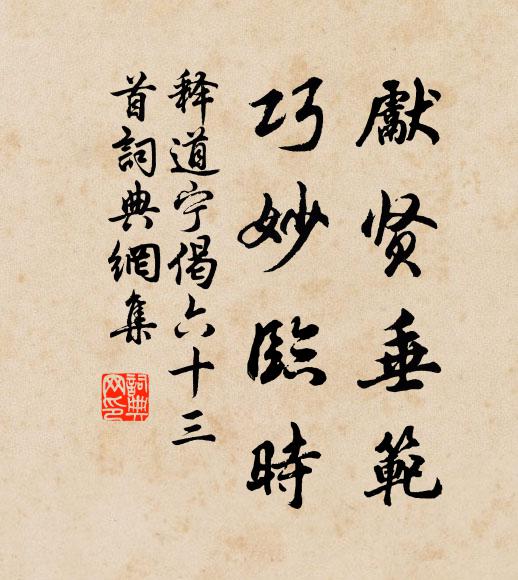 獻贤垂範
巧妙臨時
释道宁偈六十三
首詞典網集
詞典
网印